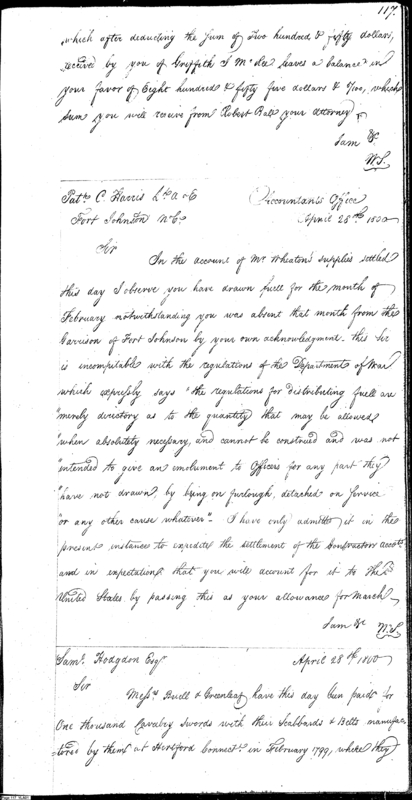 117.
which after deducting the sum of Two hundred & fifty dollars,
received by you of Griffith J McRee leaves a balance in
your favor of Eight hundred & fifty five dollars & Two, which
sum you will receive from Robert your Attorney
I am &c
W.S.
Patk. C. Harris Lt. A & E
Fort Johnston N C.
Accountants Office
April 28th 1800
Sir
In the account of Mr Wheaton's supplies settled
this day I observe you have drawn fuel for the month of
February notwithstanding you was absent that month from the
Garrison of Fort Johnson by your own acknowledgment. this Sir
is incompatable with the regulations of the Department of War
which expressly says "the regulations for distributing fuel are
"merely directory as to the quantity that may be allowed
"when absolutely necessary, and cannot be construed and was not
"intended to give an emolument to Officers for any part they
"have not drawn, by being on furlough, detached on service
"or any other cause whatever". I have only admitted it in the
present instance to expedite the settlement of the Contractors accots.
and in expectation that you will account for it to The
United States by passing this as your allowance for March
I am &c
W.S.
Saml. Hodgdon Esqr
April 28th 1800
Sir
Messrs Buell & Greenleaf have this day been paid for
One thousand Cavalry Swords with their Scabbards & Belts manufac
tured by them at Hertford Connectt. in February 1799, where they